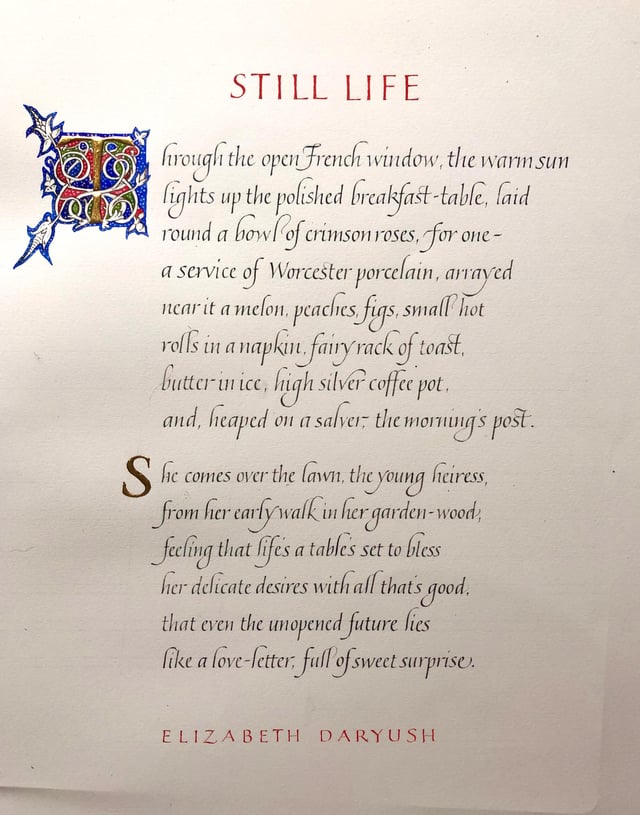 STILL LIFE
Through the open French window, the warm sun
lights up the polished breakfast-table, laid
round a bowl of crimson roses, for one-
a service of Worcester porcelain, arrayed
near it a melon, peaches, figs, small hot
rolls in a napkin, fairy rack of toast,
butter in ice, high silver coffee pot,
and, heaped on a salver, the morning's post.
She comes over the lawn, the young heiress,
from her early walk in her garden-wood,
feeling that life's a table's set to bless
her delicate desires with all that's good,
that even the unopened future lies
like a love-letter, full of sweet surprise.
ELIZABETH DARYUSH